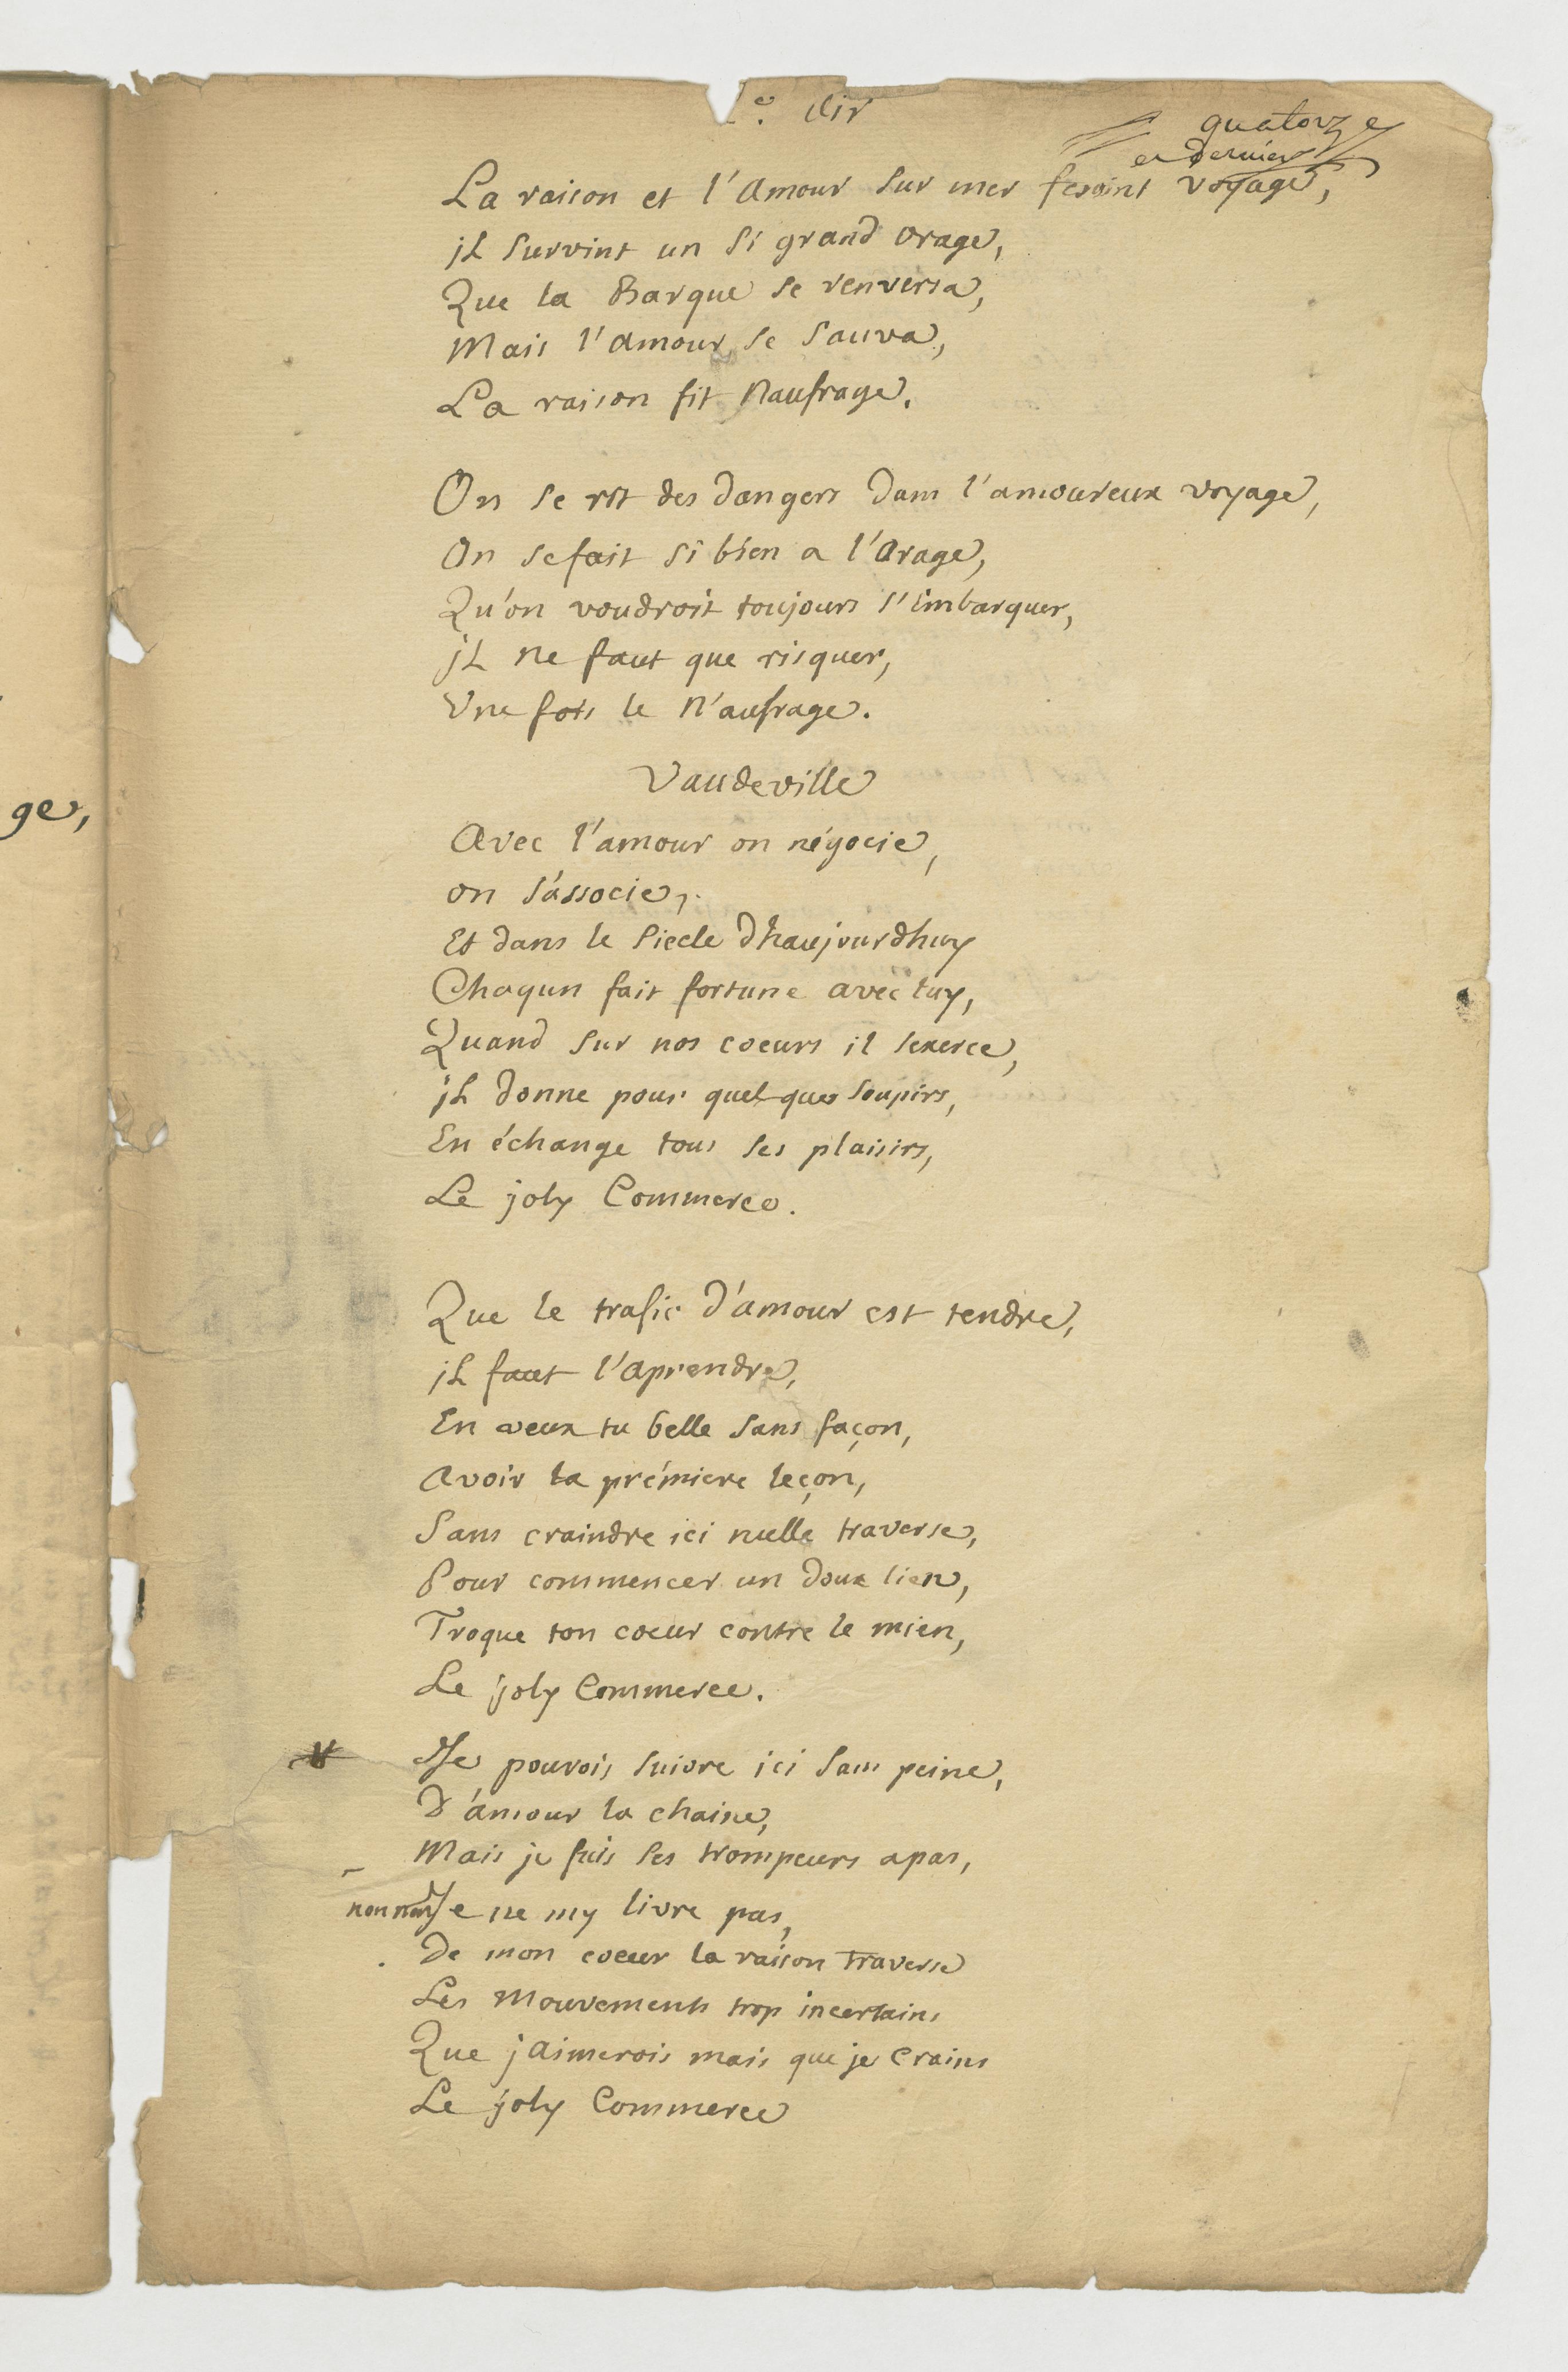 e. Air
quatorze
et dernier
La raison et l'Amour sur mer fesoint voyage,
jL survint un si grand orage,
Que la Barque se renversa,
Mais l'amour se sauva,
La raison fit Naufrage.
On se rit des dangers dans l'amoureux voyage,
On se fait si bien a l'Orage,
Qu'on voudroit toujours s'imbarquer,
jL ne faut que risquer,
Une fois le N'aufrage.
Vaudeville
ge,
Avec l'amour on négocie,
on s'associe,
Et dans le siecle dhaujourdhuy
Chaqun fait fortune avec luy,
Quand sur nos coeurs il sexerce,
jL donne pour quelques soupirs,
En échange tous ses plaisirs,
Le joly Commerce.
Que le trafic d'amour est tendre,
jL faut l'aprendre,
En veux tu belle sans façon,
Avoir la prémiere leçon,
Sans craindre ici nulle traverse,
Pour commencer un doux lien,
Troque ton coeur contre le mien,
Le joly Commerce.
Je pouvois suivre ici sans peine,
D'amour la chaine,
Mais je fuis ses trompeurs apas,
non non Je ne my livre pas,
De mon coeur la raison traverse
Les Mouvements trop incertains
Que jaimerois mais que je Crains
Le joly Commerce